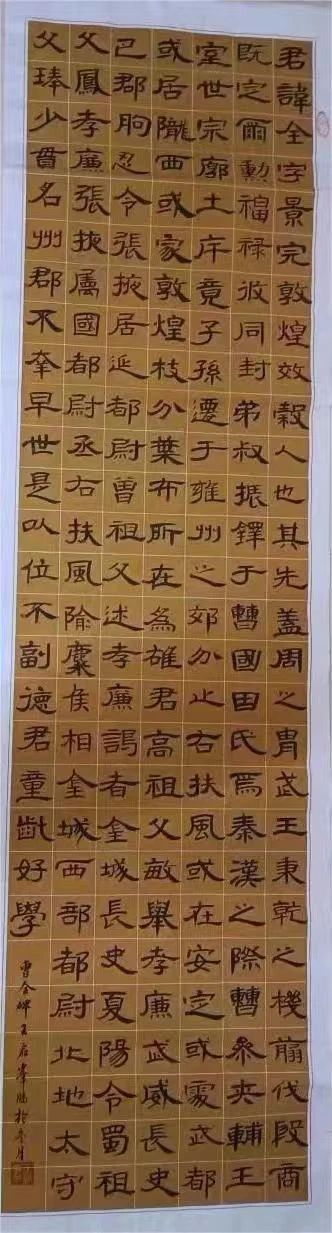 君諱全字景完敦煌效穀人也其先蓋周之胄武王秉乾之機翦伐殷商
既定爾勳福祿攸同封弟叔振鐸于曹國因氏焉秦漢之際曹參夾輔王
室世宗廓土斥竟子孫遷于雍州之郊分止右扶風或在安定或處武都
或居隴西或家敦煌枝分葉布所在為雄君高祖父敏舉孝廉武威長史
巴郡朐忍令張掖居延都尉曾祖父述孝廉謁者金城長史夏陽令蜀祖
父鳳孝廉張掖屬國都尉丞右扶風隃麋侯相金城西部都尉北地太守
父琫少貫名州郡不幸早世是以位不副德君童齔好學
曹全碑